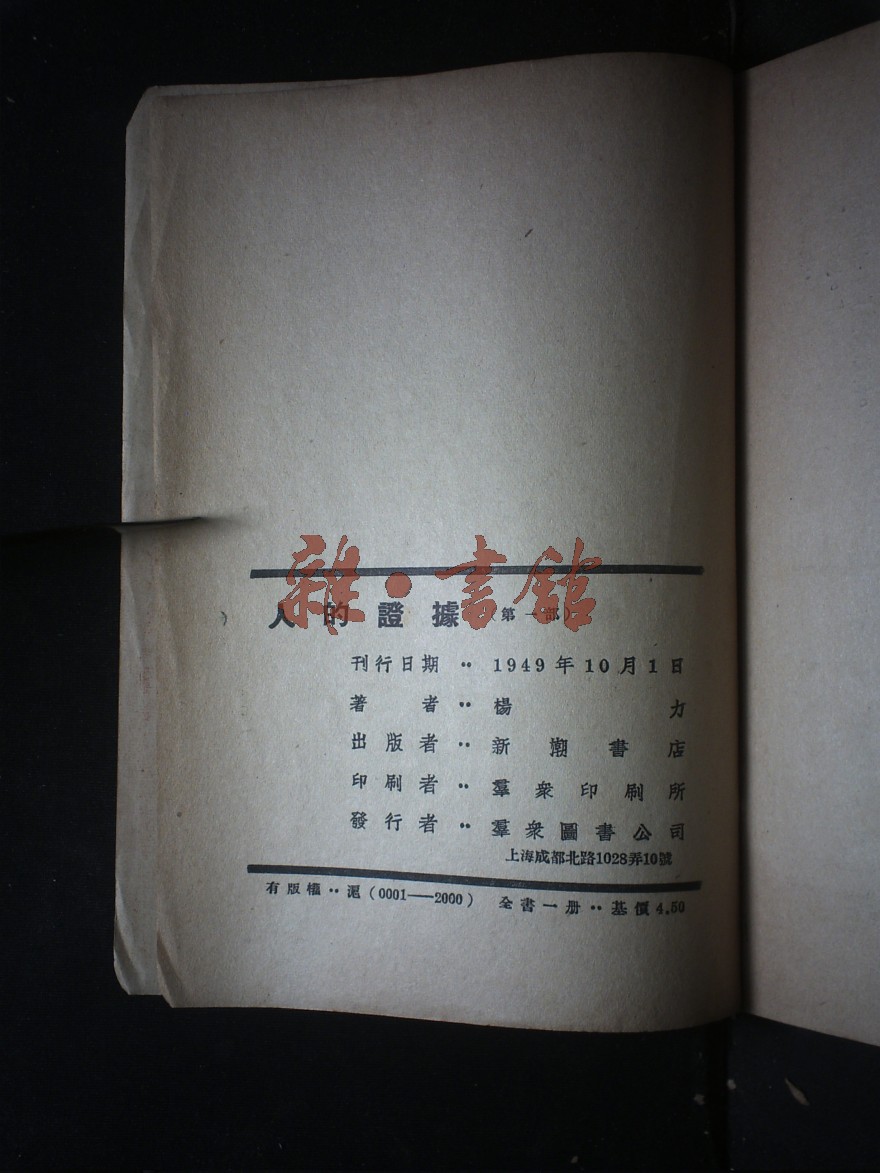 雜·書館
人的證據（第一部）
刊行日期‥1949年10月1日
著者‥楊力
出版者‥新潮書店
印刷者‥羣衆印刷所
發行者‥羣衆圖書公司
上海成都北路1028弄10號
有版權‥滬(0001——2000) 全書一册‥基價4.50